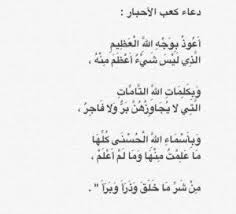 دعاء كعب الأحبار :
أَعُوذُ بِوَجْهِ اللَّهِ العَظِيمِ
الَّذِي لَيْسَ شَيْءٌ أَعْظَمَ مِنْهُ ،
وَبِكَلِمَاتِ اللَّهِ التَّامَّاتِ
الَّتِي لا يُجَاوِزُهُنَّ بَرٌّ وَلا فَاجِرٌ ،
وَبِأَسْمَاءِ اللَّهِ الْحُسْنَى كُلِّهَا
مَا عَلِمْتُ مِنْهَا وَمَا لَمْ أَعْلَمْ ،
مِنْ شَرِّ مَا خَلَقَ وَذَرَأَ وَبَرَأَ " .